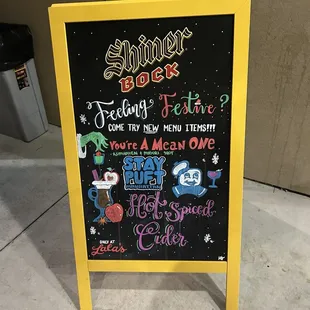 Shiner
BOCK
Feeling Festive?
COME TRY NEW MENU ITEMS!!!
You're A Mean One
STAY
PUFT
Hot Spiced
Cider
ONLY AT
Lala's